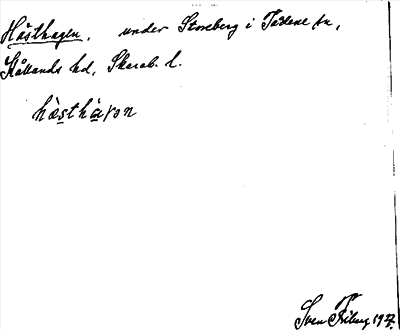 Hästhagen, under Storeberg i Tådene sn,
Kållands hd, Skarab. l.
hästhàgon
Sven